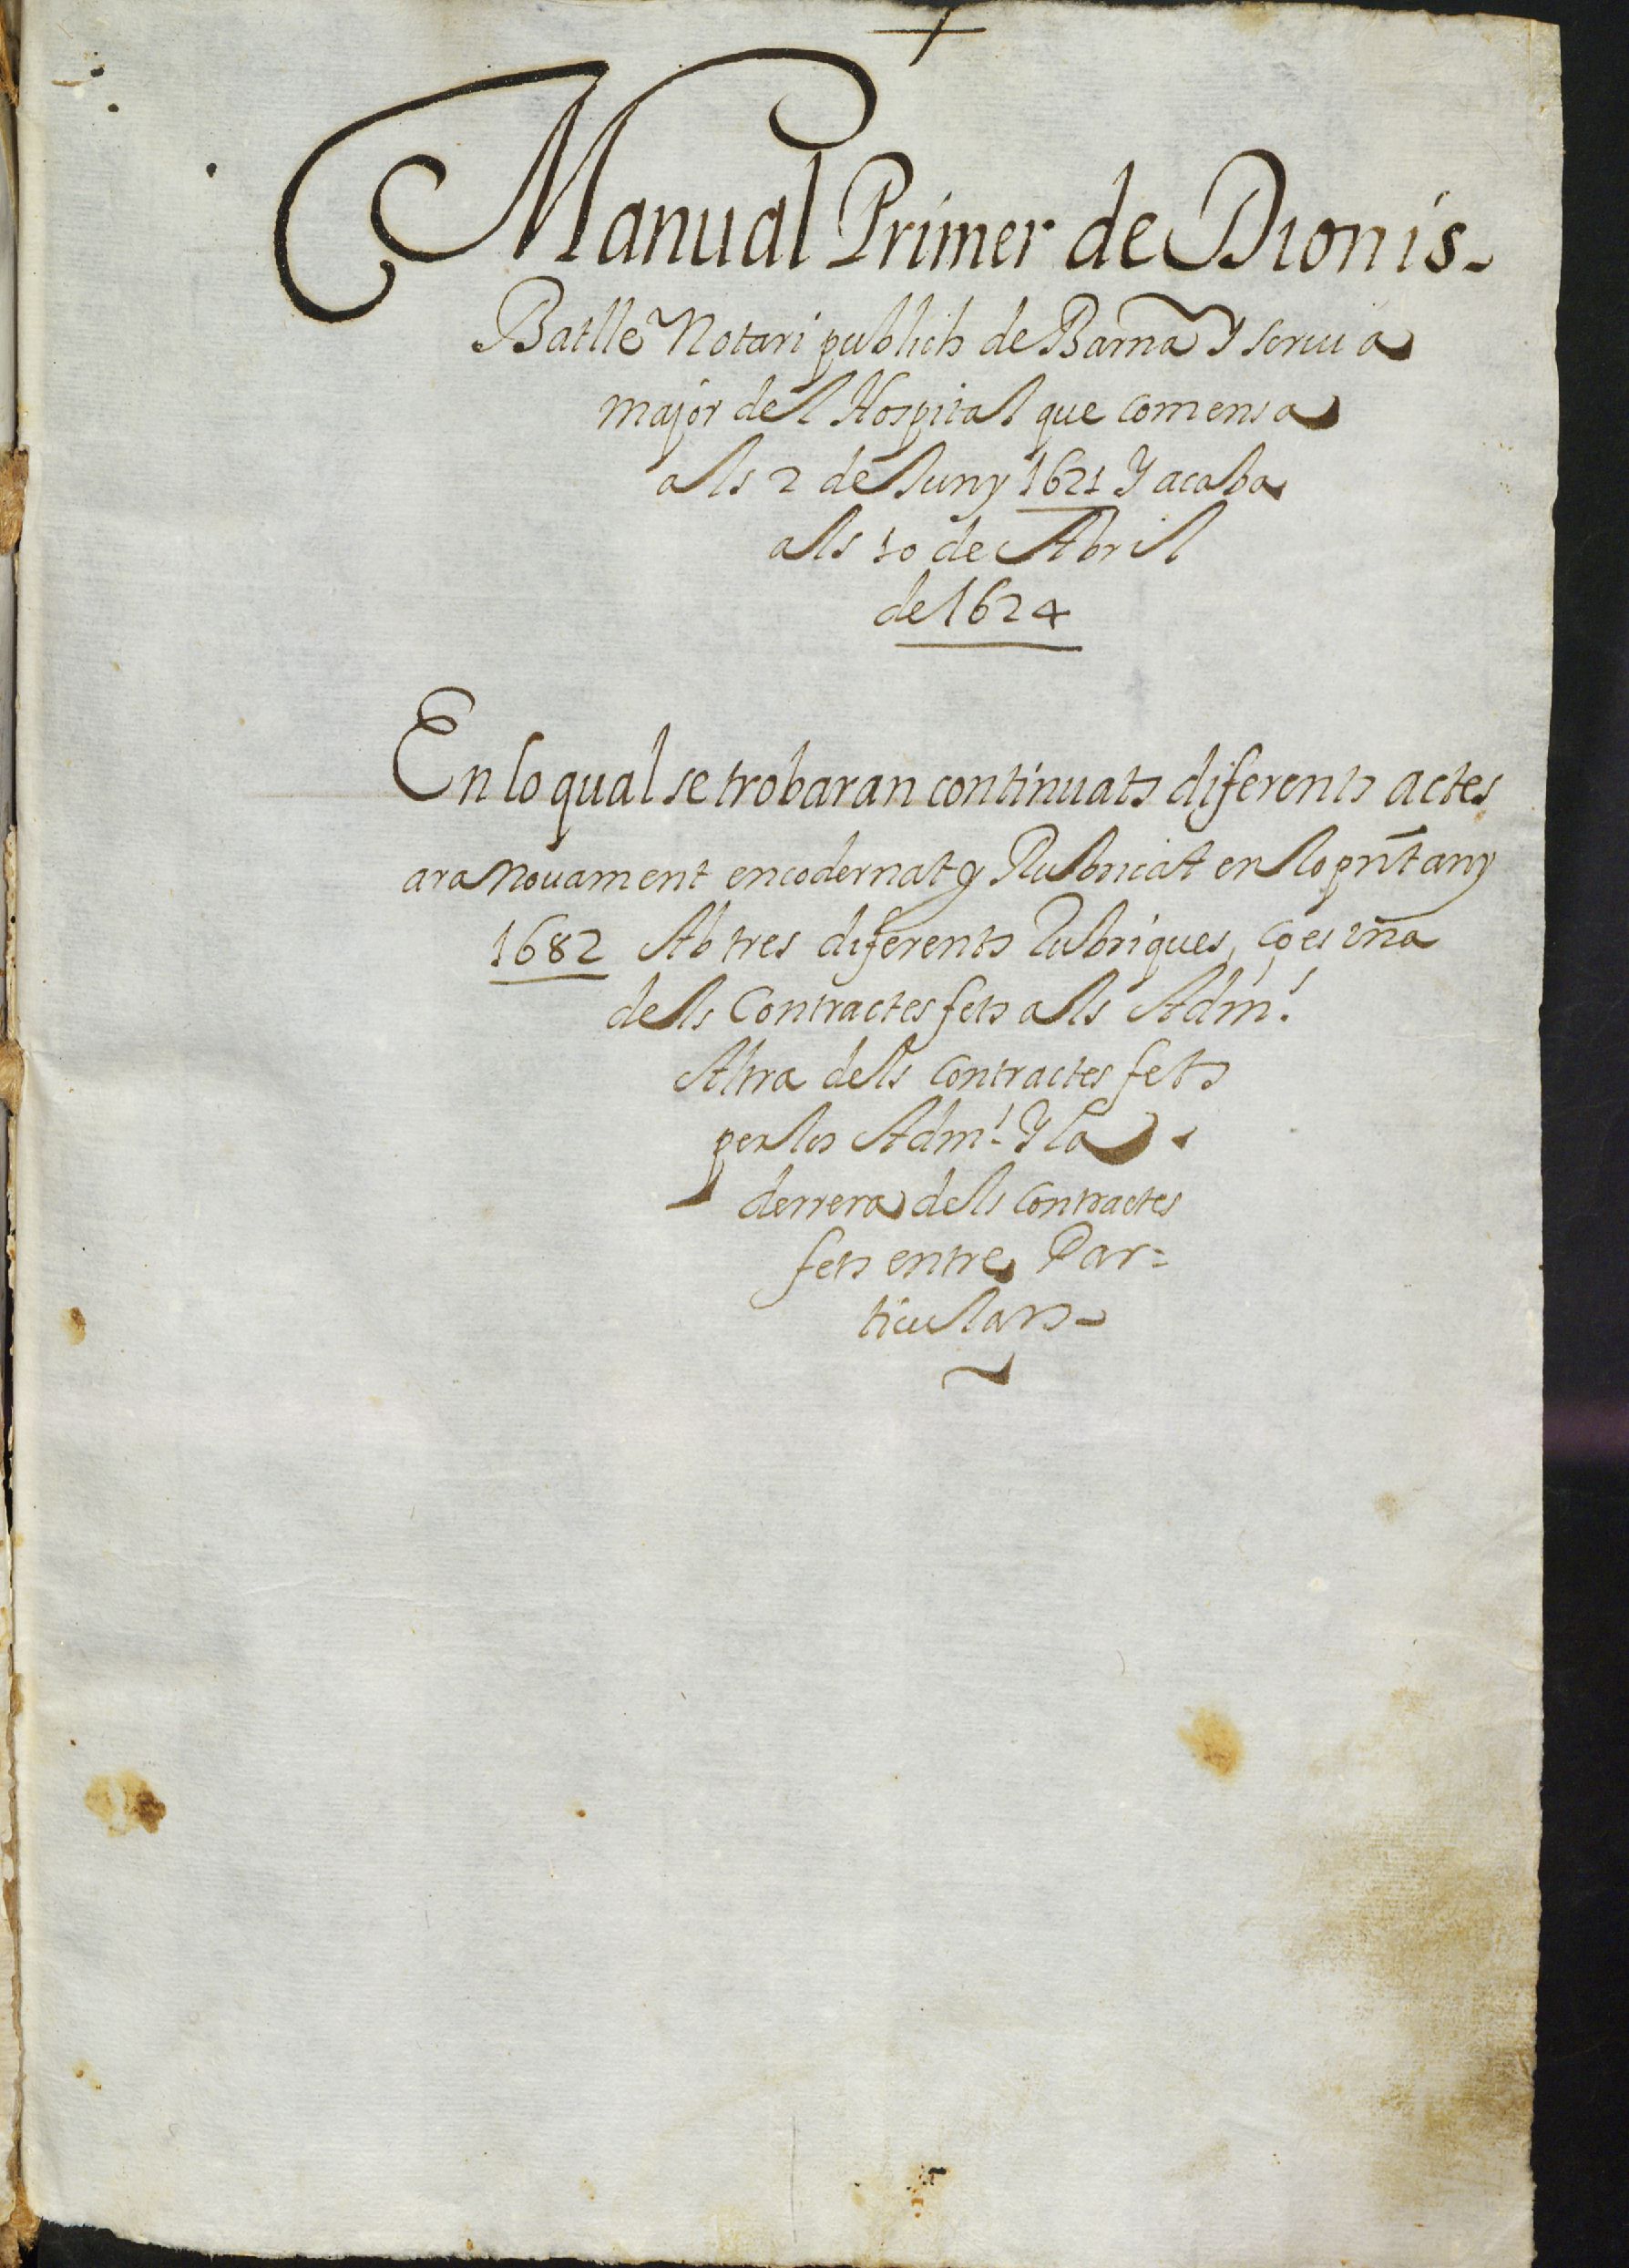 Manual Primer de Dionis
Batlle Notari publich de Barna Y Scriuá
major del Hospital que comensa
als 2 de Juny 1621 Y acaba
als 10 de Abril
de 1624
En lo qual se trobaran continuats diferents actes
ara nouament encodernat y Rubricat en lo pñt any
1682 Ab tres diferents Rubriques, ço es vña
dels Contractes fets als Adm.ʳˢ
Altra dels Contractes fets
per los Adm.ʳˢ Y la
derrera dels Contractes
fets entre Par=
ticulars